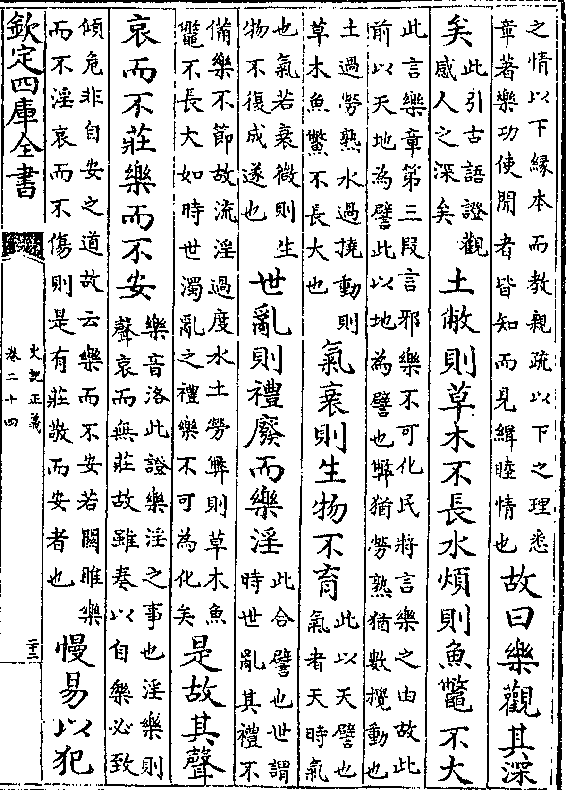 之情以下緣本而教親疏以下之理悉
章著樂功使聞者皆知而見緝睦情也
故曰樂觀其深
矣
此引古語證觀
感人之深矣
土敝則草木不長水煩則魚鼈不大
此言樂章第三段言邪樂不可化民將言樂之由故此
前以天地為譬此以地為譬也獘猶勞熟猶數攪動也
土過勞熟水過撓動則
草木魚鼈不長大也
氣衰則生物不育
此以天譬也
氣者天時氣
也氣若衰微則生
物不復成遂也
世亂則禮廢而樂淫
此合譬也世謂
時世亂其禮不
備樂不節故流淫過度水土勞獘則草木魚
鼈不長大如時世濁亂之禮樂不可為化矣
是故其聲
哀而不莊樂而不安
樂音洛此證樂淫之事也淫樂則
聲哀而無莊故雖奏以自樂必致
傾危非自安之道故云樂而不安若關雎樂
而不淫哀而不傷則是有莊敬而安者也
慢易以犯
欽定四庫全書
史記正義
卷二十四